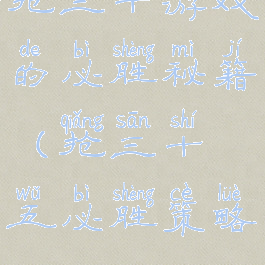 抢三十游戏
de bì shèng mì jí
的必胜秘籍
qiǎng sān shí
（抢三十
wǔ bì shèng cè lüè
五必胜策略